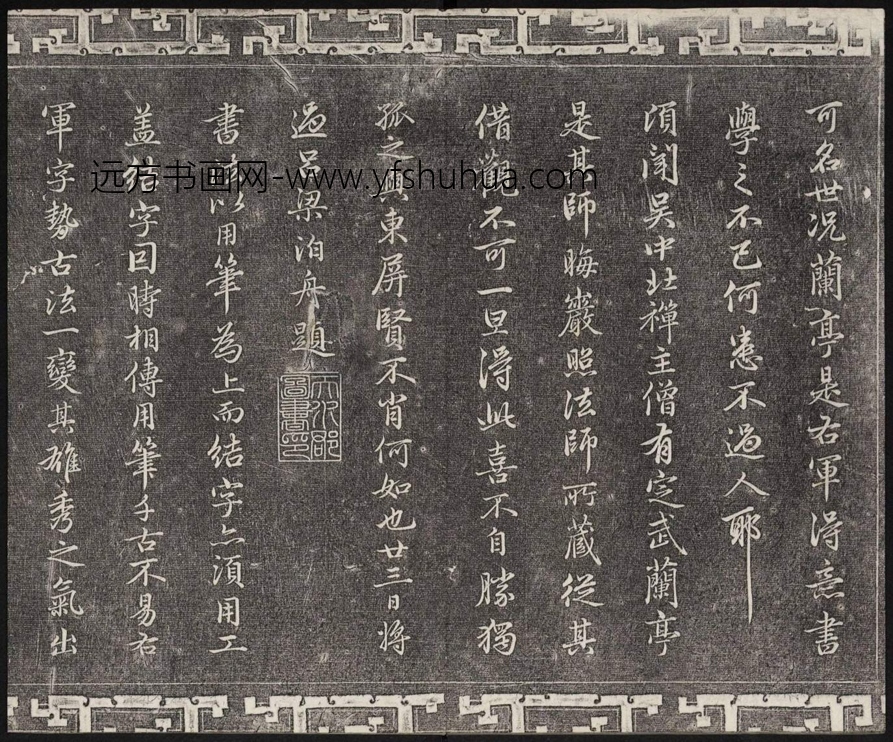 可名世况蘭亭是右軍得意書
學之不已何患不過人耶
頃聞吳中北禪主僧有定武蘭亭
是其師晦巖照法師所藏從其
借觀不可一旦得此喜不自勝獨
孤之與東屏賢不肖何如也廿三日將
過呂梁泊舟題
天水郡圖書印
書法以用筆為上而結字亦須用工
盖結字因時相傳用筆千古不易右
軍字勢古法一變其雄秀之氣出
远方书画网-www.yfshuhua.com